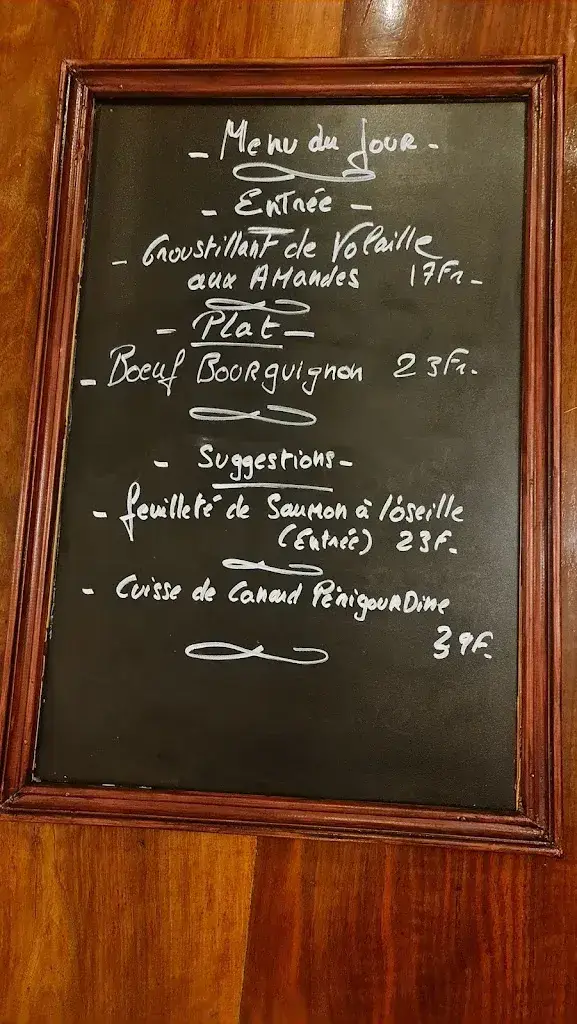 - Menu du Jour -
- Entrée -
- Croustillant de Volaille
aux Amandes 17Fr. -
- Plat -
- Boeuf Bourguignon 23Fr.
- Suggestions -
- feuilleté de Saumon à l'óseille
(Entrée) 23F.
- Cuisse de Canard Périgourdine
39F.